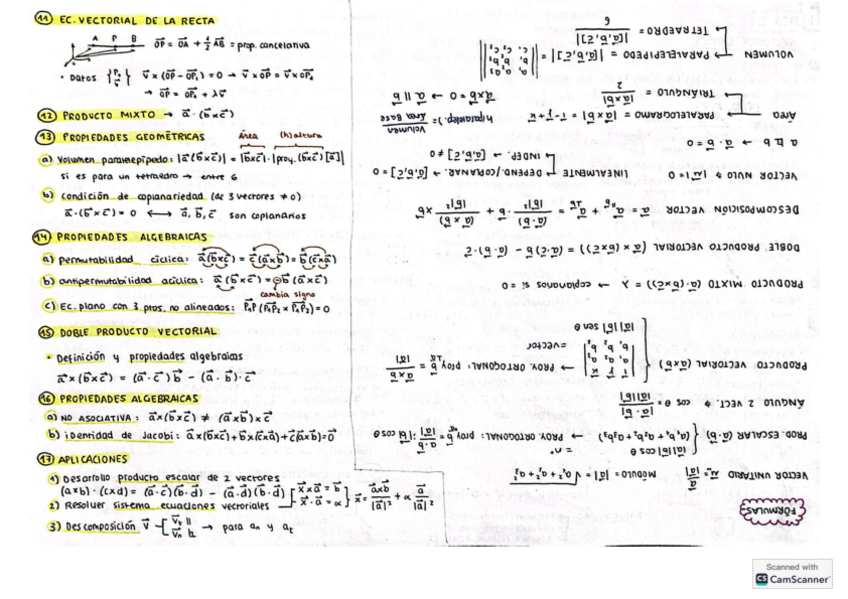 11) EC. VECTORIAL DE LA RECTA
A P B
O⃗P = O⃗A + λ/2 A⃗B = prop. cancelativa
• Datos {P₀, v⃗} v⃗ x (O⃗P - O⃗P₀) = 0 → v⃗ x O⃗P = v⃗ x O⃗P₀
→ O⃗P = O⃗P₀ + λv⃗
12) PRODUCTO MIXTO → a⃗ · (b⃗ x c⃗)
13) PROPIEDADES GEOMÉTRICAS
área (h) altura
a) Volumen paralelepípedo: |a⃗ (b⃗ x c⃗)| = |b⃗ x c⃗| · |proy. (b⃗ x c⃗) [a⃗]|
si es para un tetraedro → entre 6
b) Condición de coplanariedad (de 3 vectores ≠ 0)
a⃗ · (b⃗ x c⃗) = 0 ⟷ a⃗, b⃗, c⃗ son coplanarios
14) PROPIEDADES ALGEBRAICAS
a) permutabilidad cíclica: a⃗ (b⃗ x c⃗) = c⃗ (a⃗ x b⃗) = b⃗ (c⃗ x a⃗)
b) antipermutabilidad acíclica: a⃗ (b⃗ x c⃗) = - b⃗ (a⃗ x c⃗)
cambia signo
c) Ec. plano con 3 ptos. no alineados: P₁P (P₁P₂ x P₁P₃) = 0
15) DOBLE PRODUCTO VECTORIAL
• Definición y propiedades algebraicas
a⃗ x (b⃗ x c⃗) = (a⃗ · c⃗) b⃗ - (a⃗ · b⃗) · c⃗
16) PROPIEDADES ALGEBRAICAS
a) NO ASOCIATIVA: a⃗ x (b⃗ x c⃗) ≠ (a⃗ x b⃗) x c⃗
b) identidad de Jacobi: a⃗ x (b⃗ x c⃗) + b⃗ x (c⃗ x a⃗) + c⃗ (a⃗ x b⃗) = 0⃗
17) APLICACIONES
1) Desarrollo producto escalar de 2 vectores
(a x b) · (c x d) = (a⃗ · c⃗)(b⃗ · d⃗) - (a⃗ · d⃗)(b⃗ · c⃗)
2) Resolver sistema ecuaciones vectoriales [x⃗ x a⃗ = b⃗, x⃗ · a⃗ = α} x⃗ = a⃗ x b⃗ / |a⃗|² + α a⃗ / |a⃗|²
3) Descomposición v⃗ [ → para an y at
FÓRMULAS
VECTOR UNITARIO u⃗ = a⃗ / |a⃗| MÓDULO = |a⃗| = √a₁² + a₂² + a₃²
PROD. ESCALAR (a⃗ · b⃗) { |a⃗| |b⃗| cos θ = nº
(a₁b₁ + a₂b₂ + a₃b₃) → PROY. ORTOGONAL: proy b⃗ = a⃗ · b⃗ / |a⃗| ; |b| cos θ
ÁNGULO 2 VECT. → cos θ = |a⃗ · b⃗| / |a⃗| |b⃗|
PRODUCTO VECTORIAL (a⃗ x b⃗) { | i j k, a₁ a₂ a₃, b₁ b₂ b₃ | = vector → PROY. ORTOGONAL: proy b⃗ = a x b / |a|
|a⃗| |b⃗| sen θ
PRODUCTO MIXTO (a⃗ · (b⃗ x c⃗)) = λ → coplanarios si = 0
DOBLE PRODUCTO VECTORIAL (a⃗ x (b⃗ x c⃗)) = (a⃗ · c⃗) b⃗ - (a⃗ · b⃗) · c⃗
DESCOMPOSICIÓN VECTOR a⃗ = a⃗ + a⃗ = (a⃗ · b⃗) / |b⃗|² · b⃗ + (a⃗ x b⃗) / |b⃗|² x b
VECTOR NULO → |u⃗| = 0 LINEALMENTE DEPEND./COPLANAR. → [a⃗, b⃗, c⃗] = 0
INDEP. → [a⃗, b⃗, c⃗] ≠ 0
→ a⃗ · b⃗ = 0
ÁREA PARALELOGRAMO = |a⃗ x b⃗| = i - j + k h paralelep. = Volumen / Área Base
TRIÁNGULO = |a⃗ x b⃗| / 2 a x b = 0 → a⃗ || b
VOLUMEN PARALELEPÍPEDO = |[a⃗, b⃗, c⃗]| = | a₁ a₂ a₃, b₁ b₂ b₃, c₁ c₂ c₃ |
TETRAEDRO = |[a⃗, b⃗, c⃗]| / 6
Scanned with
CS CamScanner